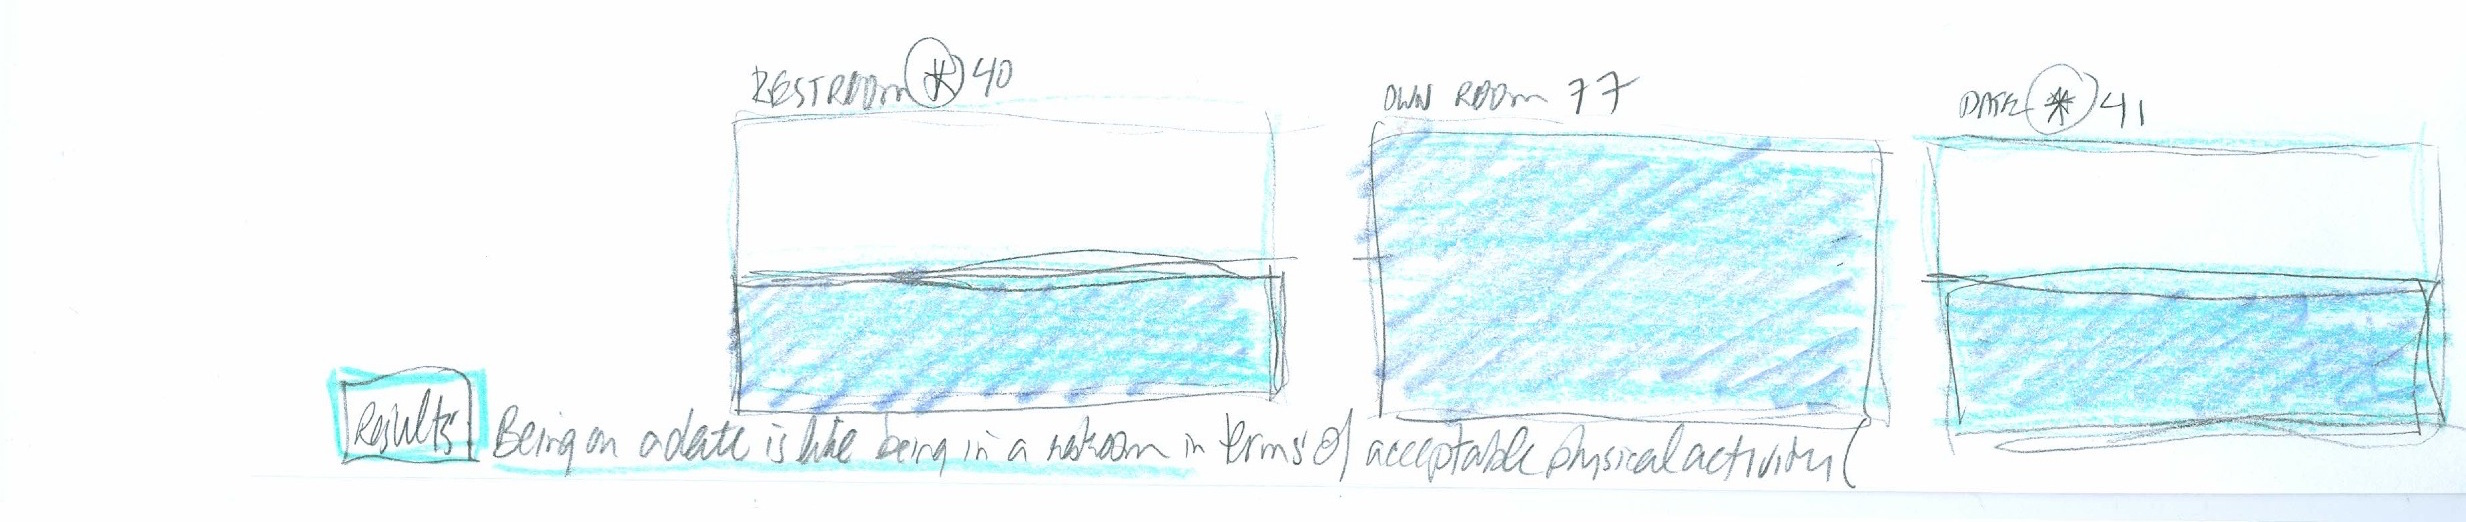 RESTROOM * 40
OWN ROOM 77
DATE * 41
Results
Being on a date is like being in a restroom in terms of acceptable physical activity (